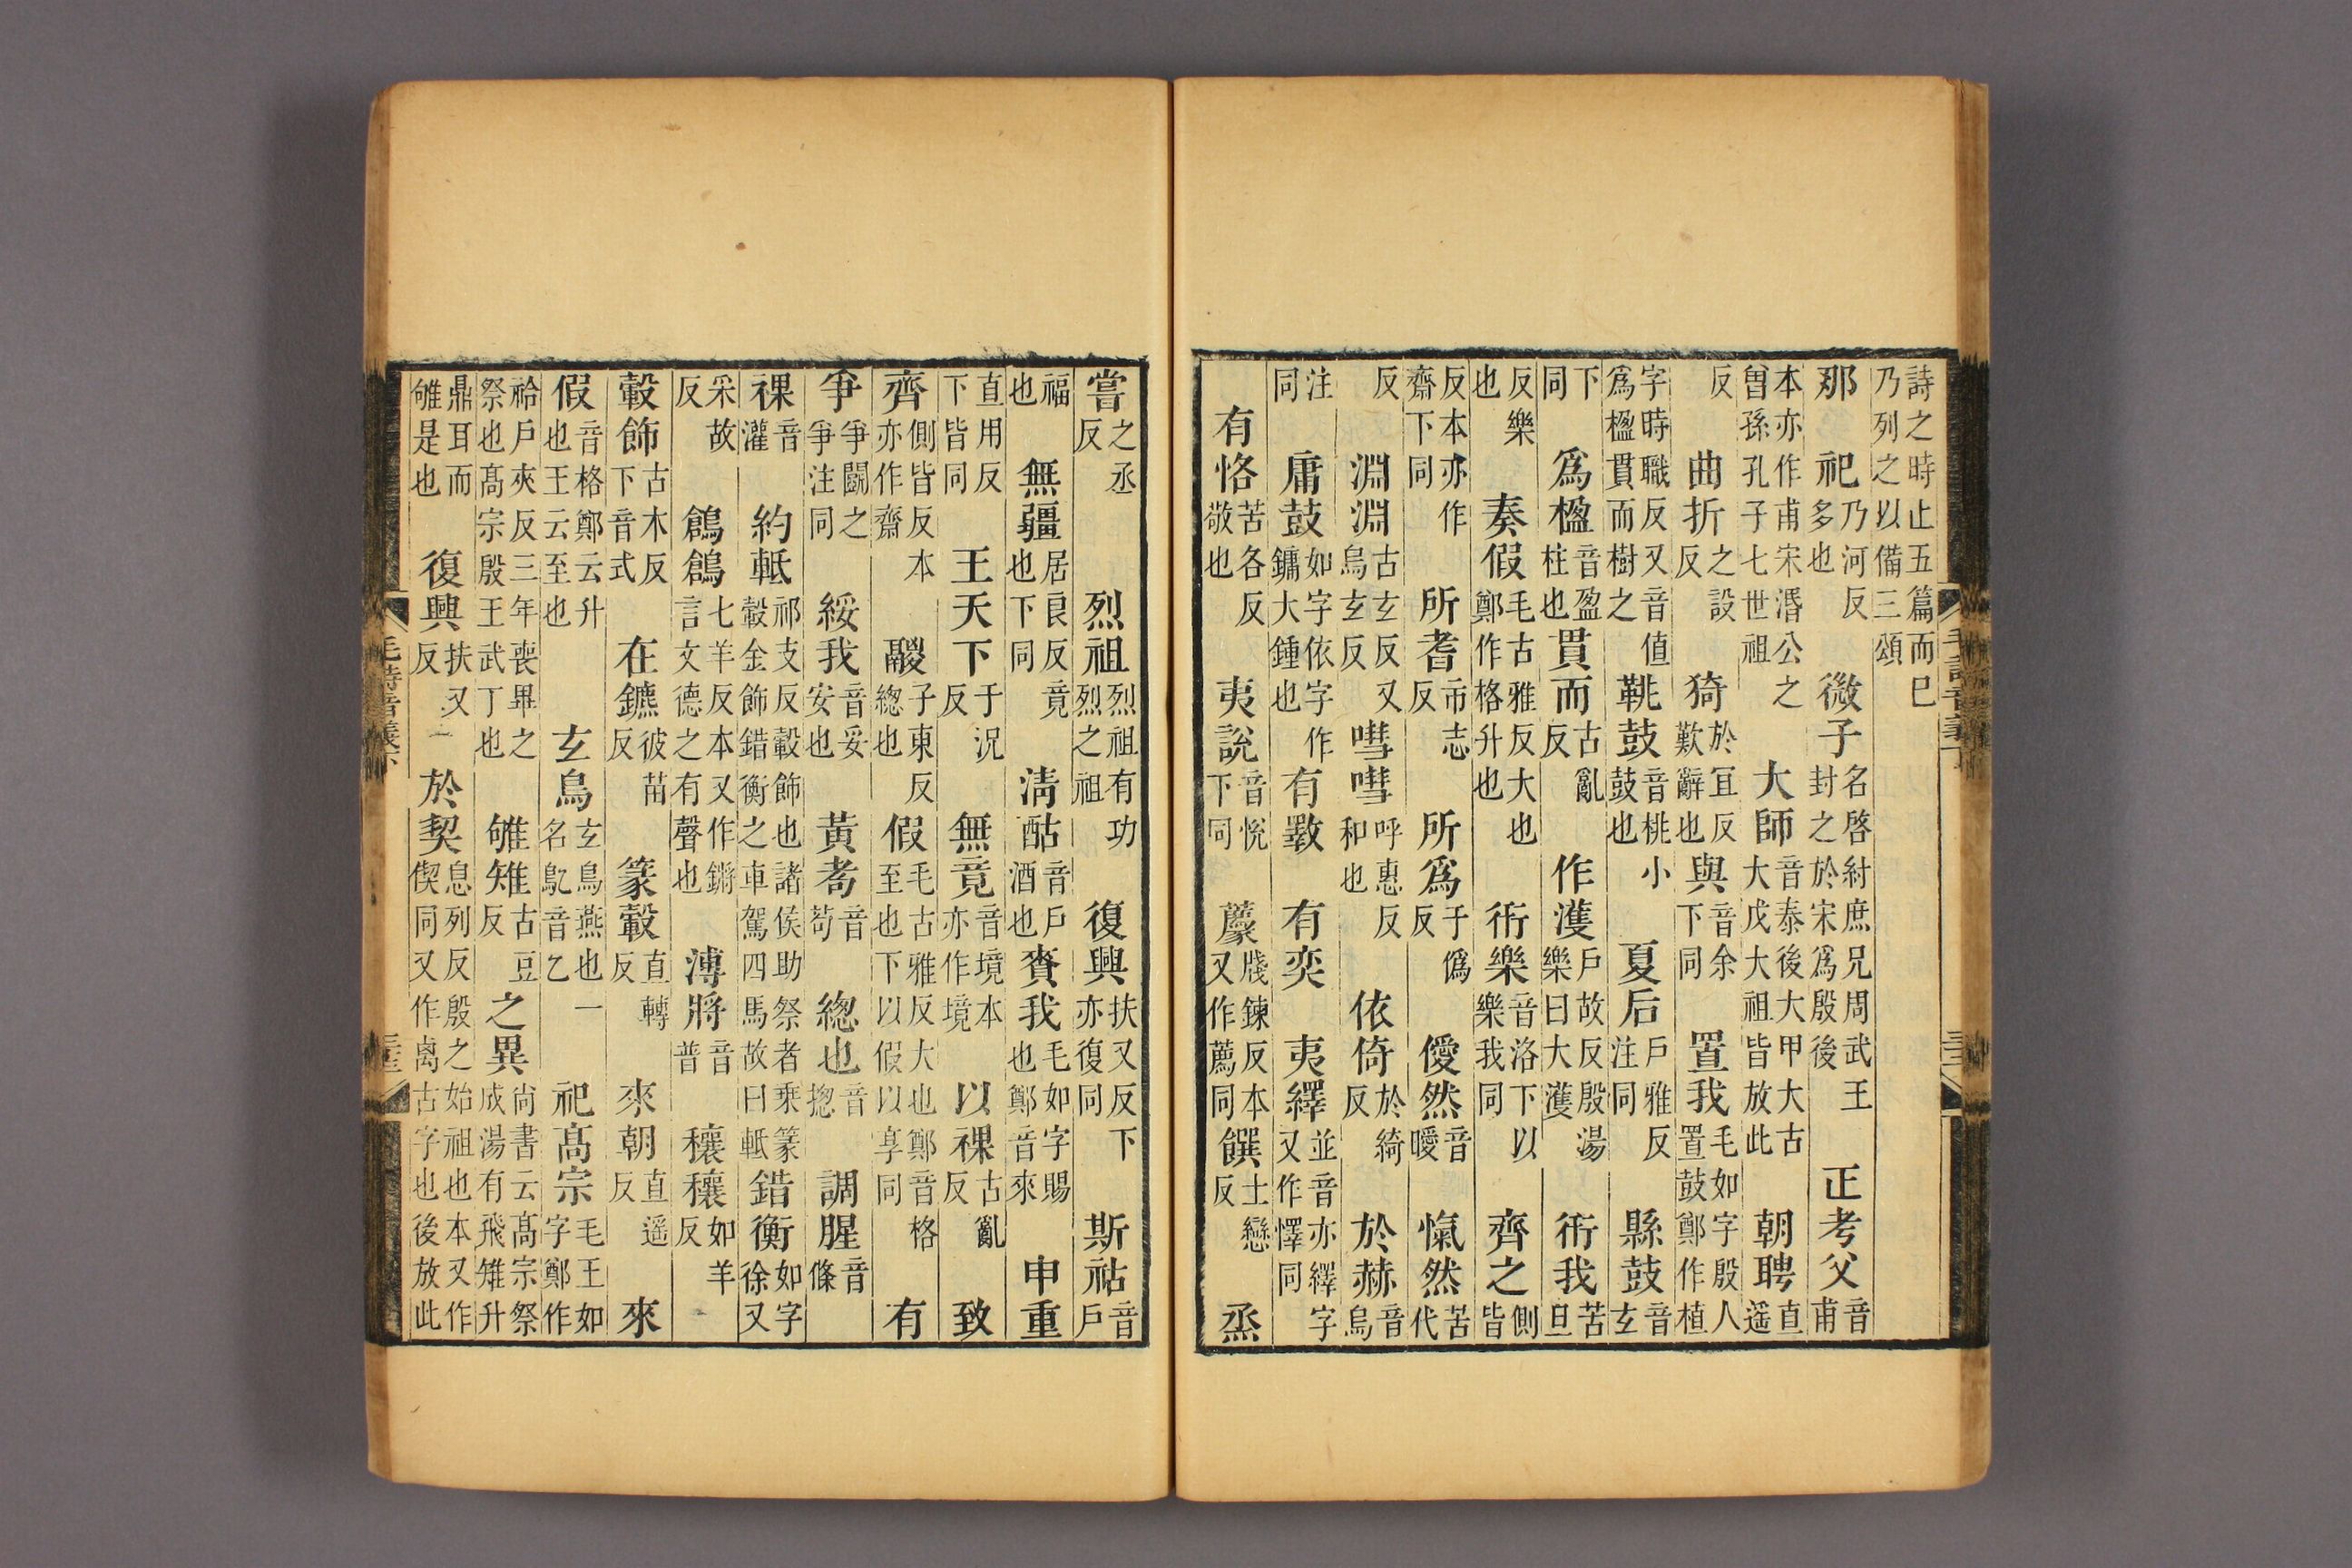 詩之時止五篇而巳乃列之以備三頌
那祀乃河反多也微子名啓紂庶兄周武王封之於宋爲殷後正考父音甫
本亦作甫宋湣公之曽孫孔子七世祖大師音泰後大甲大古大戊大祖皆放此朝聘直遥
反曲折之設反猗於冝反歎辭也與音余下同置我毛如字殷人置鼓鄭作植
字時職反又音值爲楹貫而樹之鞉鼓音桃小鼓也夏后戶雅反注同縣鼓音玄
下同爲楹音盈柱也貫而古亂反作濩戶故反殷湯樂曰大濩衎我苦旦
反樂也奏假毛古雅反大也鄭作格升也衎樂音洛下以樂我同齊之側皆
反本亦作齋下同所耆市志反所爲于僞反僾然音曖愾然苦代
反淵淵古玄反又烏玄反嘒嘒呼惠反和也依倚於綺反於赫音烏
注同庸鼓如字依字作鏞大鍾也有斁有奕夷繹並音亦繹字又作懌同
有恪苦各反敬也夷說音悅下同牋鍊反本又作薦同饌士戀反烝
毛詩音義下
嘗之丞反烈祖烈祖有功烈之祖復興扶又反下亦復同斯祜音戶
福也無疆居良反竟也下同清酤音戶酒也賚我毛如字賜也鄭音來申重
直用反下皆同王天下于況反無竟音境本亦作境以祼古亂反致
齊側皆反本亦作齋鬷子東反總也假毛古雅反大也鄭音格至也下以假以享同有
爭爭鬭之爭注同綏我音妥安也黃耇音苟總也音揔調腥音條
祼音灌約軝祁支反轂飾也諸侯助祭者乗篆轂金飾錯衡之車駕四馬故曰軝錯衡如字徐又
采故反鶬鶬七羊反本又作鏘言文德之有聲也溥將音普穰穰如羊反
轂飾古木反下音式在鑣彼苗反篆轂直轉反來朝直遥反來
假音格鄭云升也王云至也玄鳥玄鳥燕也一名鳦音乙祀髙宗毛王如字鄭作
祫戶夾反三年喪畢之祭也髙宗殷王武丁也雊雉古豆反之異尚書云髙宗祭成湯有飛雉升
鼎耳而雊是也復興扶又反於契息列反殷之始祖也本又作偰同又作卨古字也後放此
毛詩音義下